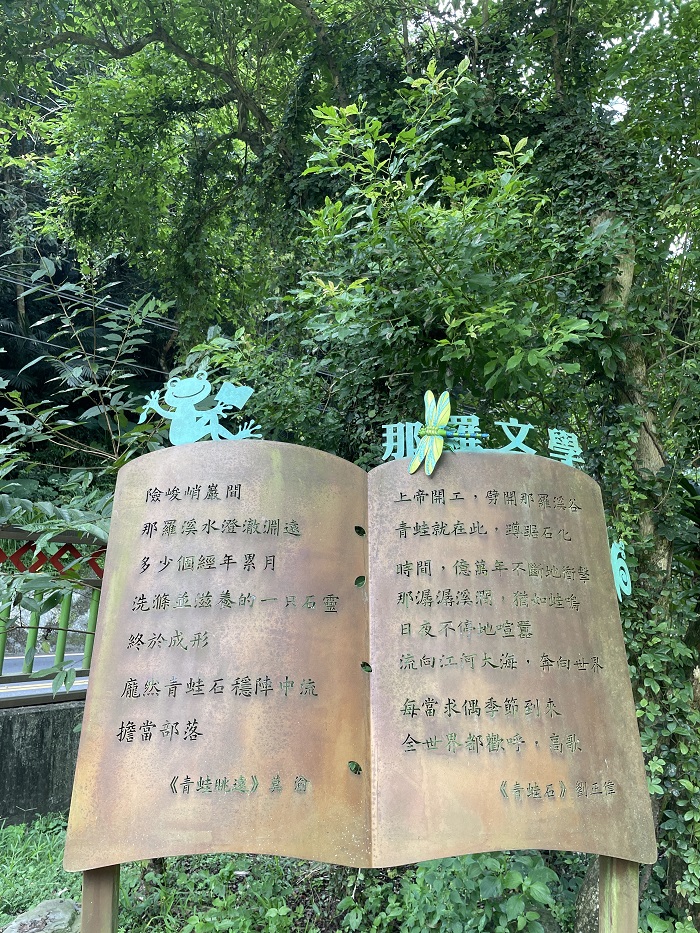 那羅文學
險峻峭巖間
那羅溪水澄澈淵遠
多少個經年累月
洗滌並滋養的一只石靈
終於成形
龐然青蛙石穩陣中流
擔當部落
《青蛙眺遠》莫渝
上帝開工，劈開那羅溪谷
青蛙就在此，蹲踞石化
時間，億萬年不斷地衝擊
那潺潺溪澗，猶如蛙鳴
日夜不停地喧囂
流向江河大海，奔向世界
每當求偶季節到來
全世界都歡呼，高歌
《青蛙石》劉正偉